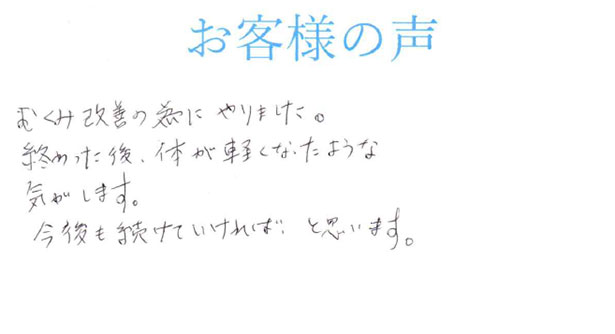 お客様の声
むくみ改善の為にやりました。
終わった後、体が軽くなったような
気がします。
今後も続けていければ、と思います。